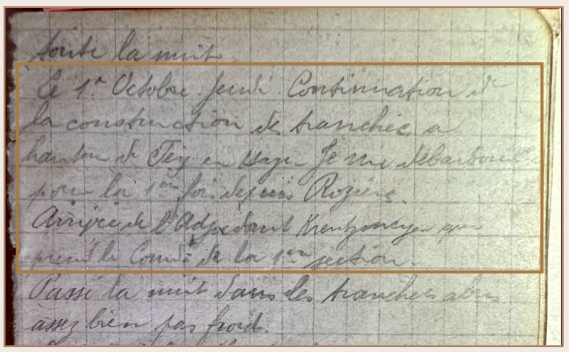 toute la nuit
Le 1er Octobre Jeudi Continuation de
la construction de tranchée a
hauteur de Fay en Haye Je me débarbouille
pour la 1ère fois depuis Rozière.
Arrivée de l'Adjudant qui
prend le Comdt de la 1ère section.
Passé la nuit dans les tranchées
assez bien pas froid.